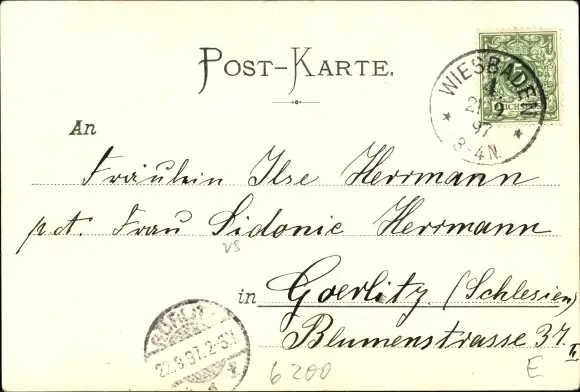 POST-KARTE.
WIESBADEN
1
21 9
97
3-4N.
An
Fräulein Ilse Herrmann
p. A. Frau Sidonie Herrmann
vs
in Goerlitz (Schlesien)
Blumenstrasse 37. II
22.9.97. 2-3N
6200
E